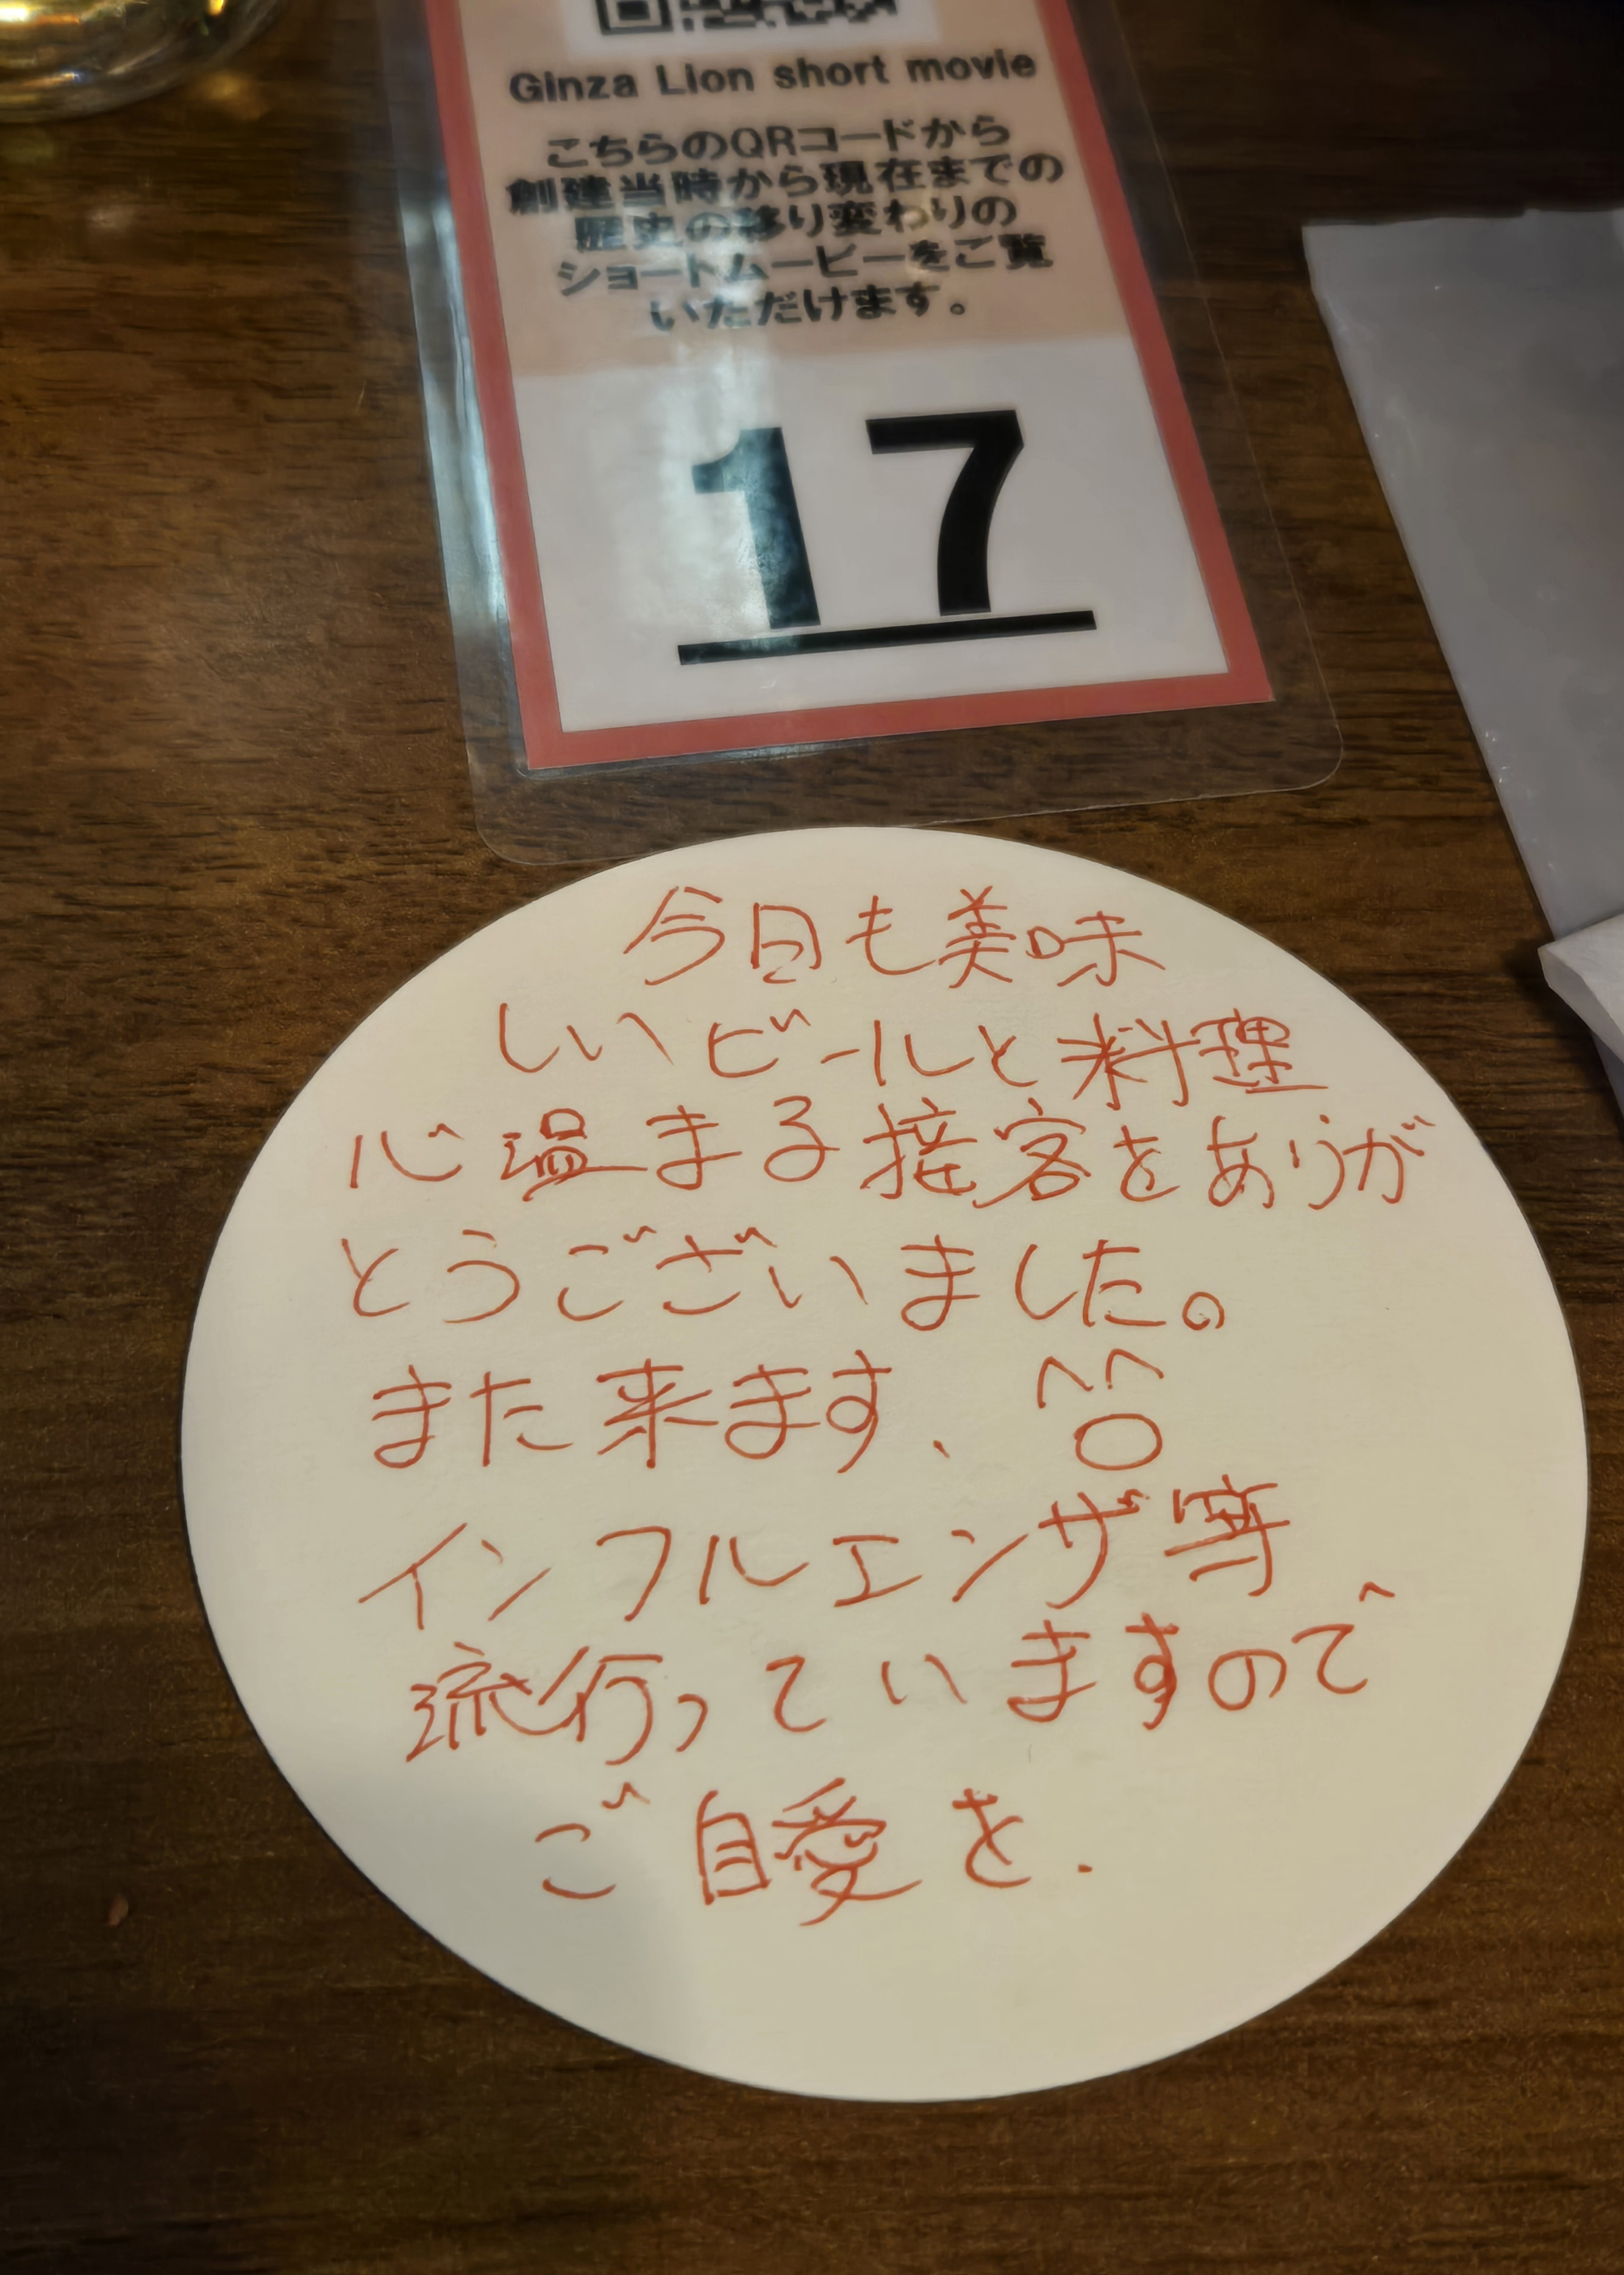 Ginza Lion short movie
こちらのQRコードから
創建当時から現在までの
歴史の移り変わりの
ショートムービーをご覧
いただけます。
17
今日も美味
しいビールと料理
心温まる接客をありが
とうございました。
また来ます、
インフルエンザ等
流行っていますので
ご自愛を.